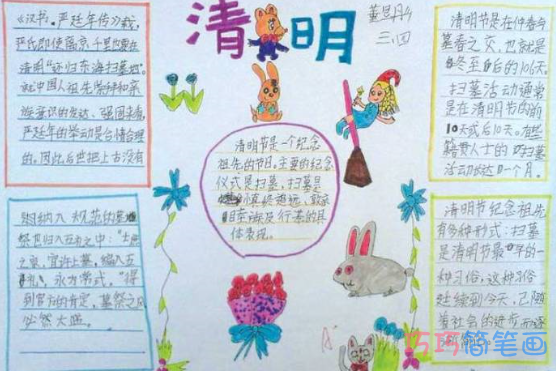 清明
三.四
《汉书·严延年传》载,
严氏即使离京千里也要在
清明"还归东海扫墓地"。
就中国人祖先崇拜和亲
族意识的发达、强固来看,
严延年的举动是合情合理
的。因此后世把上古没有
纳入规范的墓
祭也归入五礼之中:"士庶
之家,宜许上墓,编入五
礼,永为常式。"得
到官方的肯定,墓祭之风
必然大盛。
清明节是一个纪念
祖先的节日,主要的纪念
仪式是扫墓,扫墓是
慎终追远、敦亲
睦族及行孝的具
体表现。
清明节是在仲春与
暮春之交,也就是
冬至后的106天。
扫墓活动通常
是在清明节的前
10天或后10天。有些
籍贯人士的扫墓
活动长达一个月。
清明节纪念祖先
有多种形式:扫墓
是清明节最早的一
种习俗,这种习俗
延续到今天,已随
着社会的进步而逐
巧巧简笔画